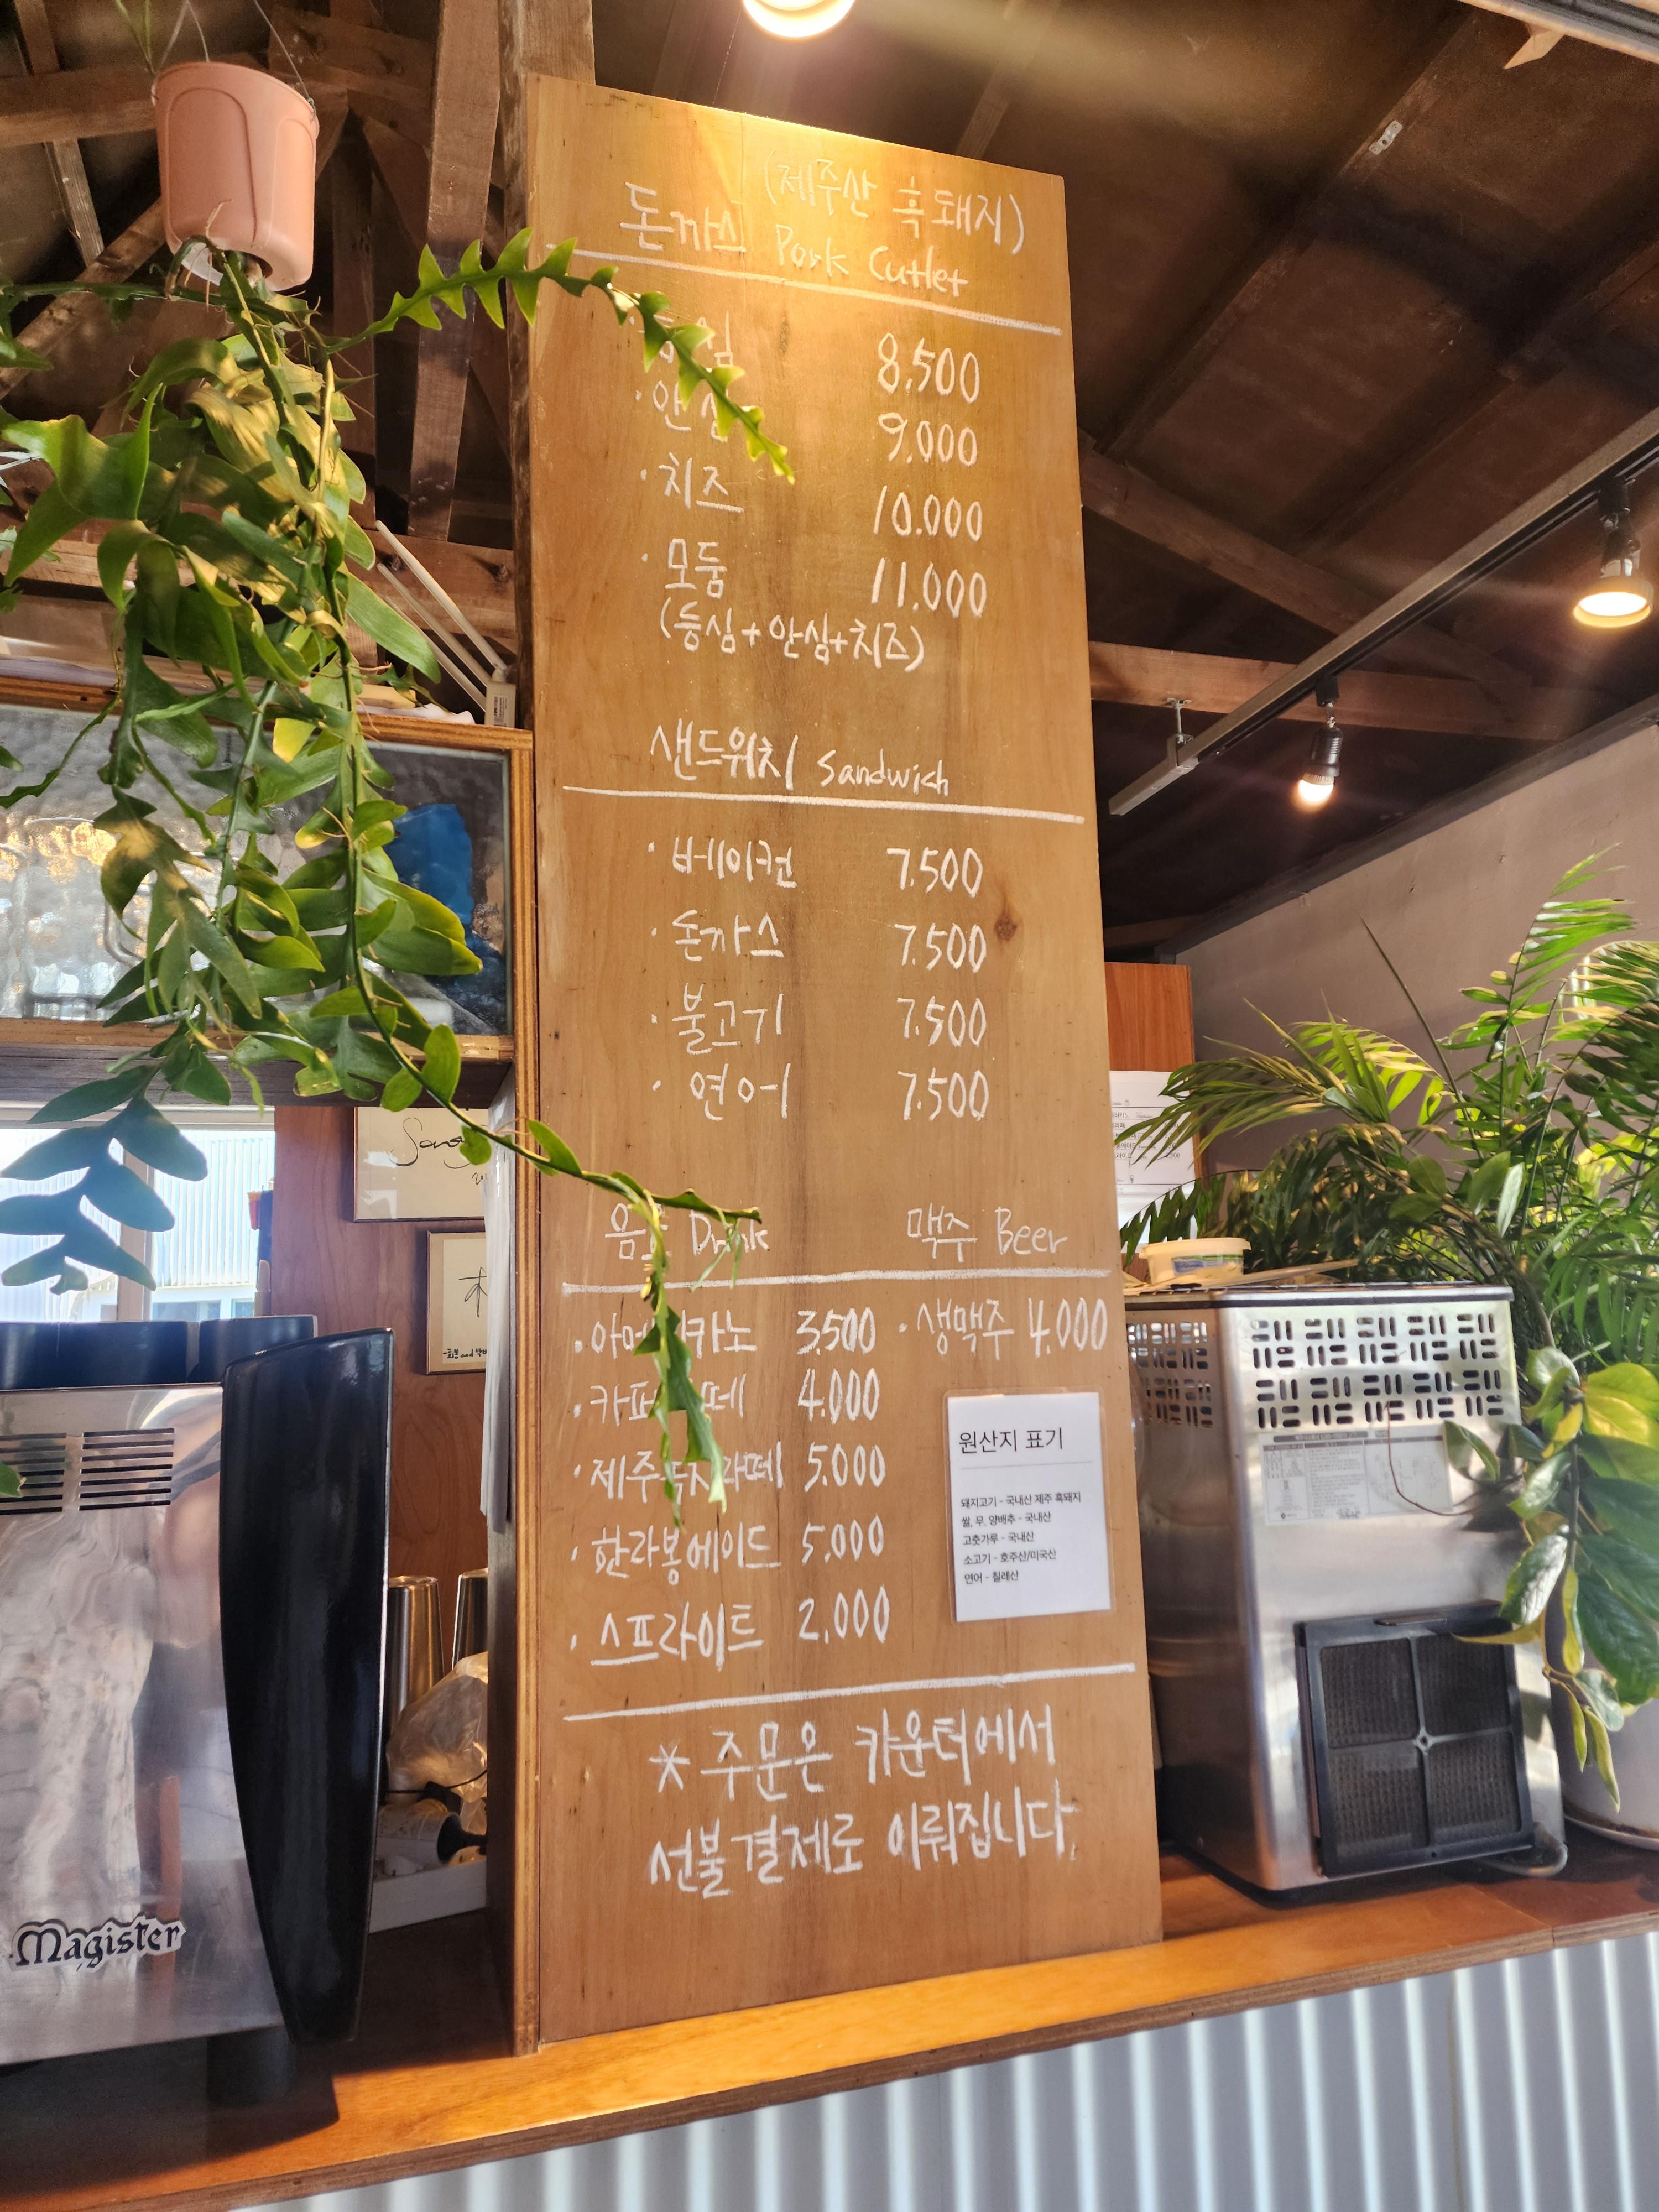 (제주산 흑돼지)
돈까스 Pork Cutlet
8.500
· 안심 9.000
· 치즈 10.000
· 모둠 11.000
(등심+안심+치즈)
샌드위치 Sandwich
· 베이컨 7.500
· 돈까스 7.500
· 불고기 7.500
· 연어 7.500
맥주 Beer
3.500 · 생맥주 4.000
4.000
5.000
· 한라봉에이드 5.000
· 스프라이트 2.000
* 주문은 카운터에서
선불결제로 이뤄집니다.
원산지 표기
돼지고기 - 국내산 제주 흑돼지
쌀, 무, 양배추 - 국내산
고춧가루 - 국내산
소고기 - 호주산/미국산
연어 - 칠레산
Magister